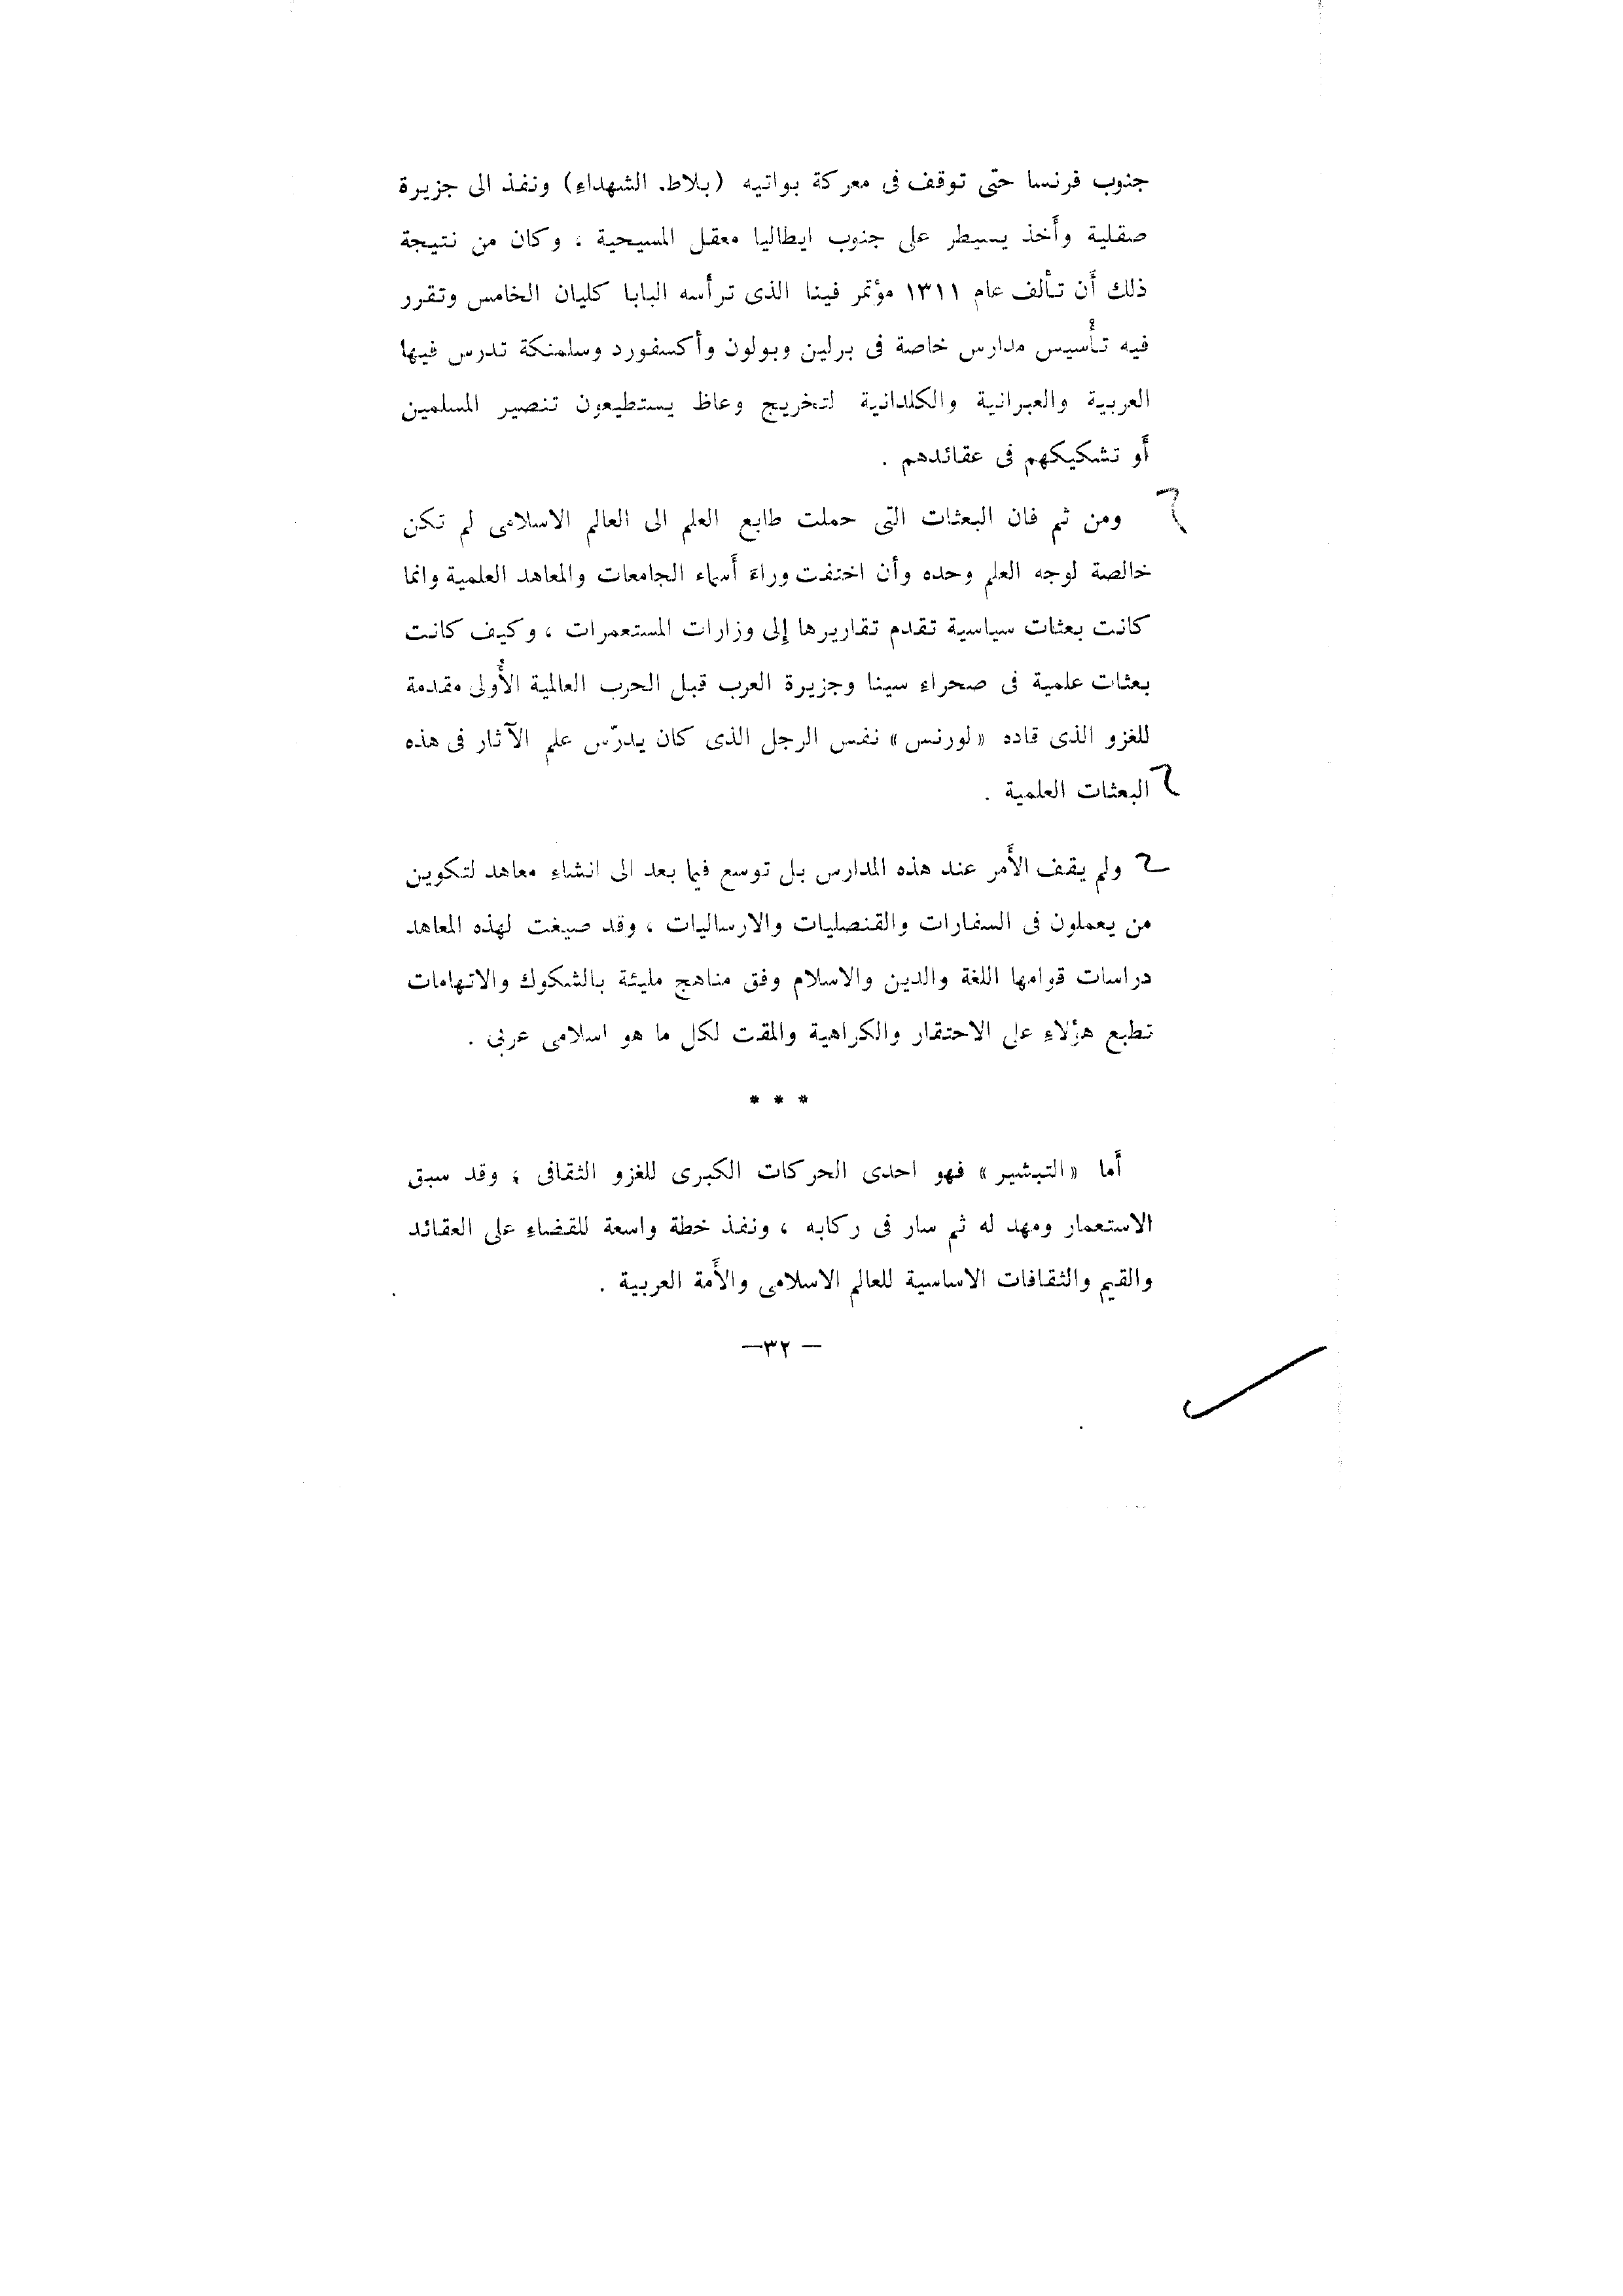 جنوب فرنسا حتى توقف فى معركة بواتيه (بلاط. الشهداء) ونفذ الى جزيرة
صقلية وأخذ يسيطر على جنوب ايطاليا معقل المسيحية ، وكان من نتيجة
ذلك أن تألف عام ١٣١١ مؤتمر فينا الذى ترأسه البابا كليان الخامس وتقرر
فيه تأسيس مدارس خاصة فى برلين وبولون وأكسفورد وسلمنكة تدرس فيها
العربية والعبرانية والكلدانية لتخريج وعاظ يستطيعون تنصير المسلمين
أو تشكيكهم فى عقائدهم .
ومن ثم فان البعثات التى حملت طابع العلم الى العالم الاسلامى لم تكن
خالصة لوجه العلم وحده وأن اختفت وراء أسماء الجامعات والمعاهد العلمية وانما
كانت بعثات سياسية تقدم تقاريرها إلى وزارات المستعمرات ، وكيف كانت
بعثات علمية فى صحراء سينا وجزيرة العرب قبل الحرب العالمية الأولى مقدمة
للغزو الذى قاده «لورنس» نفس الرجل الذى كان يدرّس علم الآثار فى هذه
البعثات العلمية .
ولم يقف الأمر عند هذه المدارس بل توسع فيما بعد الى انشاء معاهد لتكوين
من يعملون فى السفارات والقنصليات والارساليات ، وقد صيغت لهذه المعاهد
دراسات قوامها اللغة والدين والاسلام وفق مناهج مليئة بالشكوك والاتهامات
تطبع هؤلاء على الاحتقار والكراهية والمقت لكل ما هو اسلامى عربى .
* * *
أما «التبشير» فهو احدى الحركات الكبرى للغزو الثقافى ؛ وقد سبق
الاستعمار ومهد له ثم سار فى ركابه ، ونفذ خطة واسعة للقضاء على العقائد
والقيم والثقافات الاساسية للعالم الاسلامى والأمة العربية .
— ٣٢—